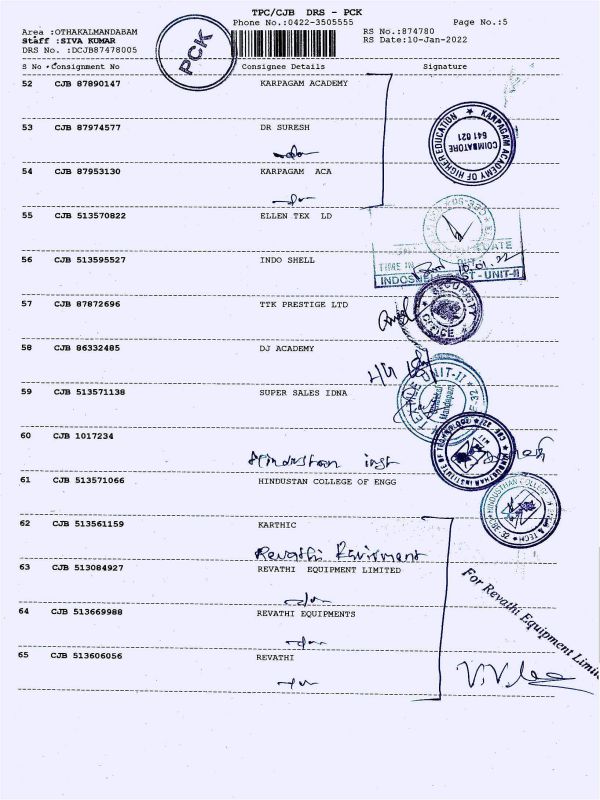 TPC/CJB DRS - PCK
Phone No.:0422-3505555 Page No.:5
Area :OTHAKALMANDABAM RS No.:874780
Staff :SIVA KUMAR RS Date:10-Jan-2022
DRS No. :DCJB87478005
PCK
S No Consignment No Consignee Details Signature
52 CJB 87890147 KARPAGAM ACADEMY
53 CJB 87974577 DR SURESH
KARPAGAM ACADEMY OF HIGHER EDUCATION
COIMBATORE
641 021
54 CJB 87953130 KARPAGAM ACA
55 CJB 513570822 ELLEN TEX LD
56 CJB 513595527 INDO SHELL
TIME IN
INDOSHELL UNIT-II
57 CJB 87872696 TTK PRESTIGE LTD
SECURITY OFFICE
58 CJB 86332485 DJ ACADEMY
59 CJB 513571138 SUPER SALES IDNA
UNIT-II
60 CJB 1017234
Hindustan inst
61 CJB 513571066 HINDUSTAN COLLEGE OF ENGG
62 CJB 513561159 KARTHIC
Revathi
63 CJB 513084927 REVATHI EQUIPMENT LIMITED
For Revathi Equipment
64 CJB 513669988 REVATHI EQUIPMENTS
65 CJB 513606056 REVATHI